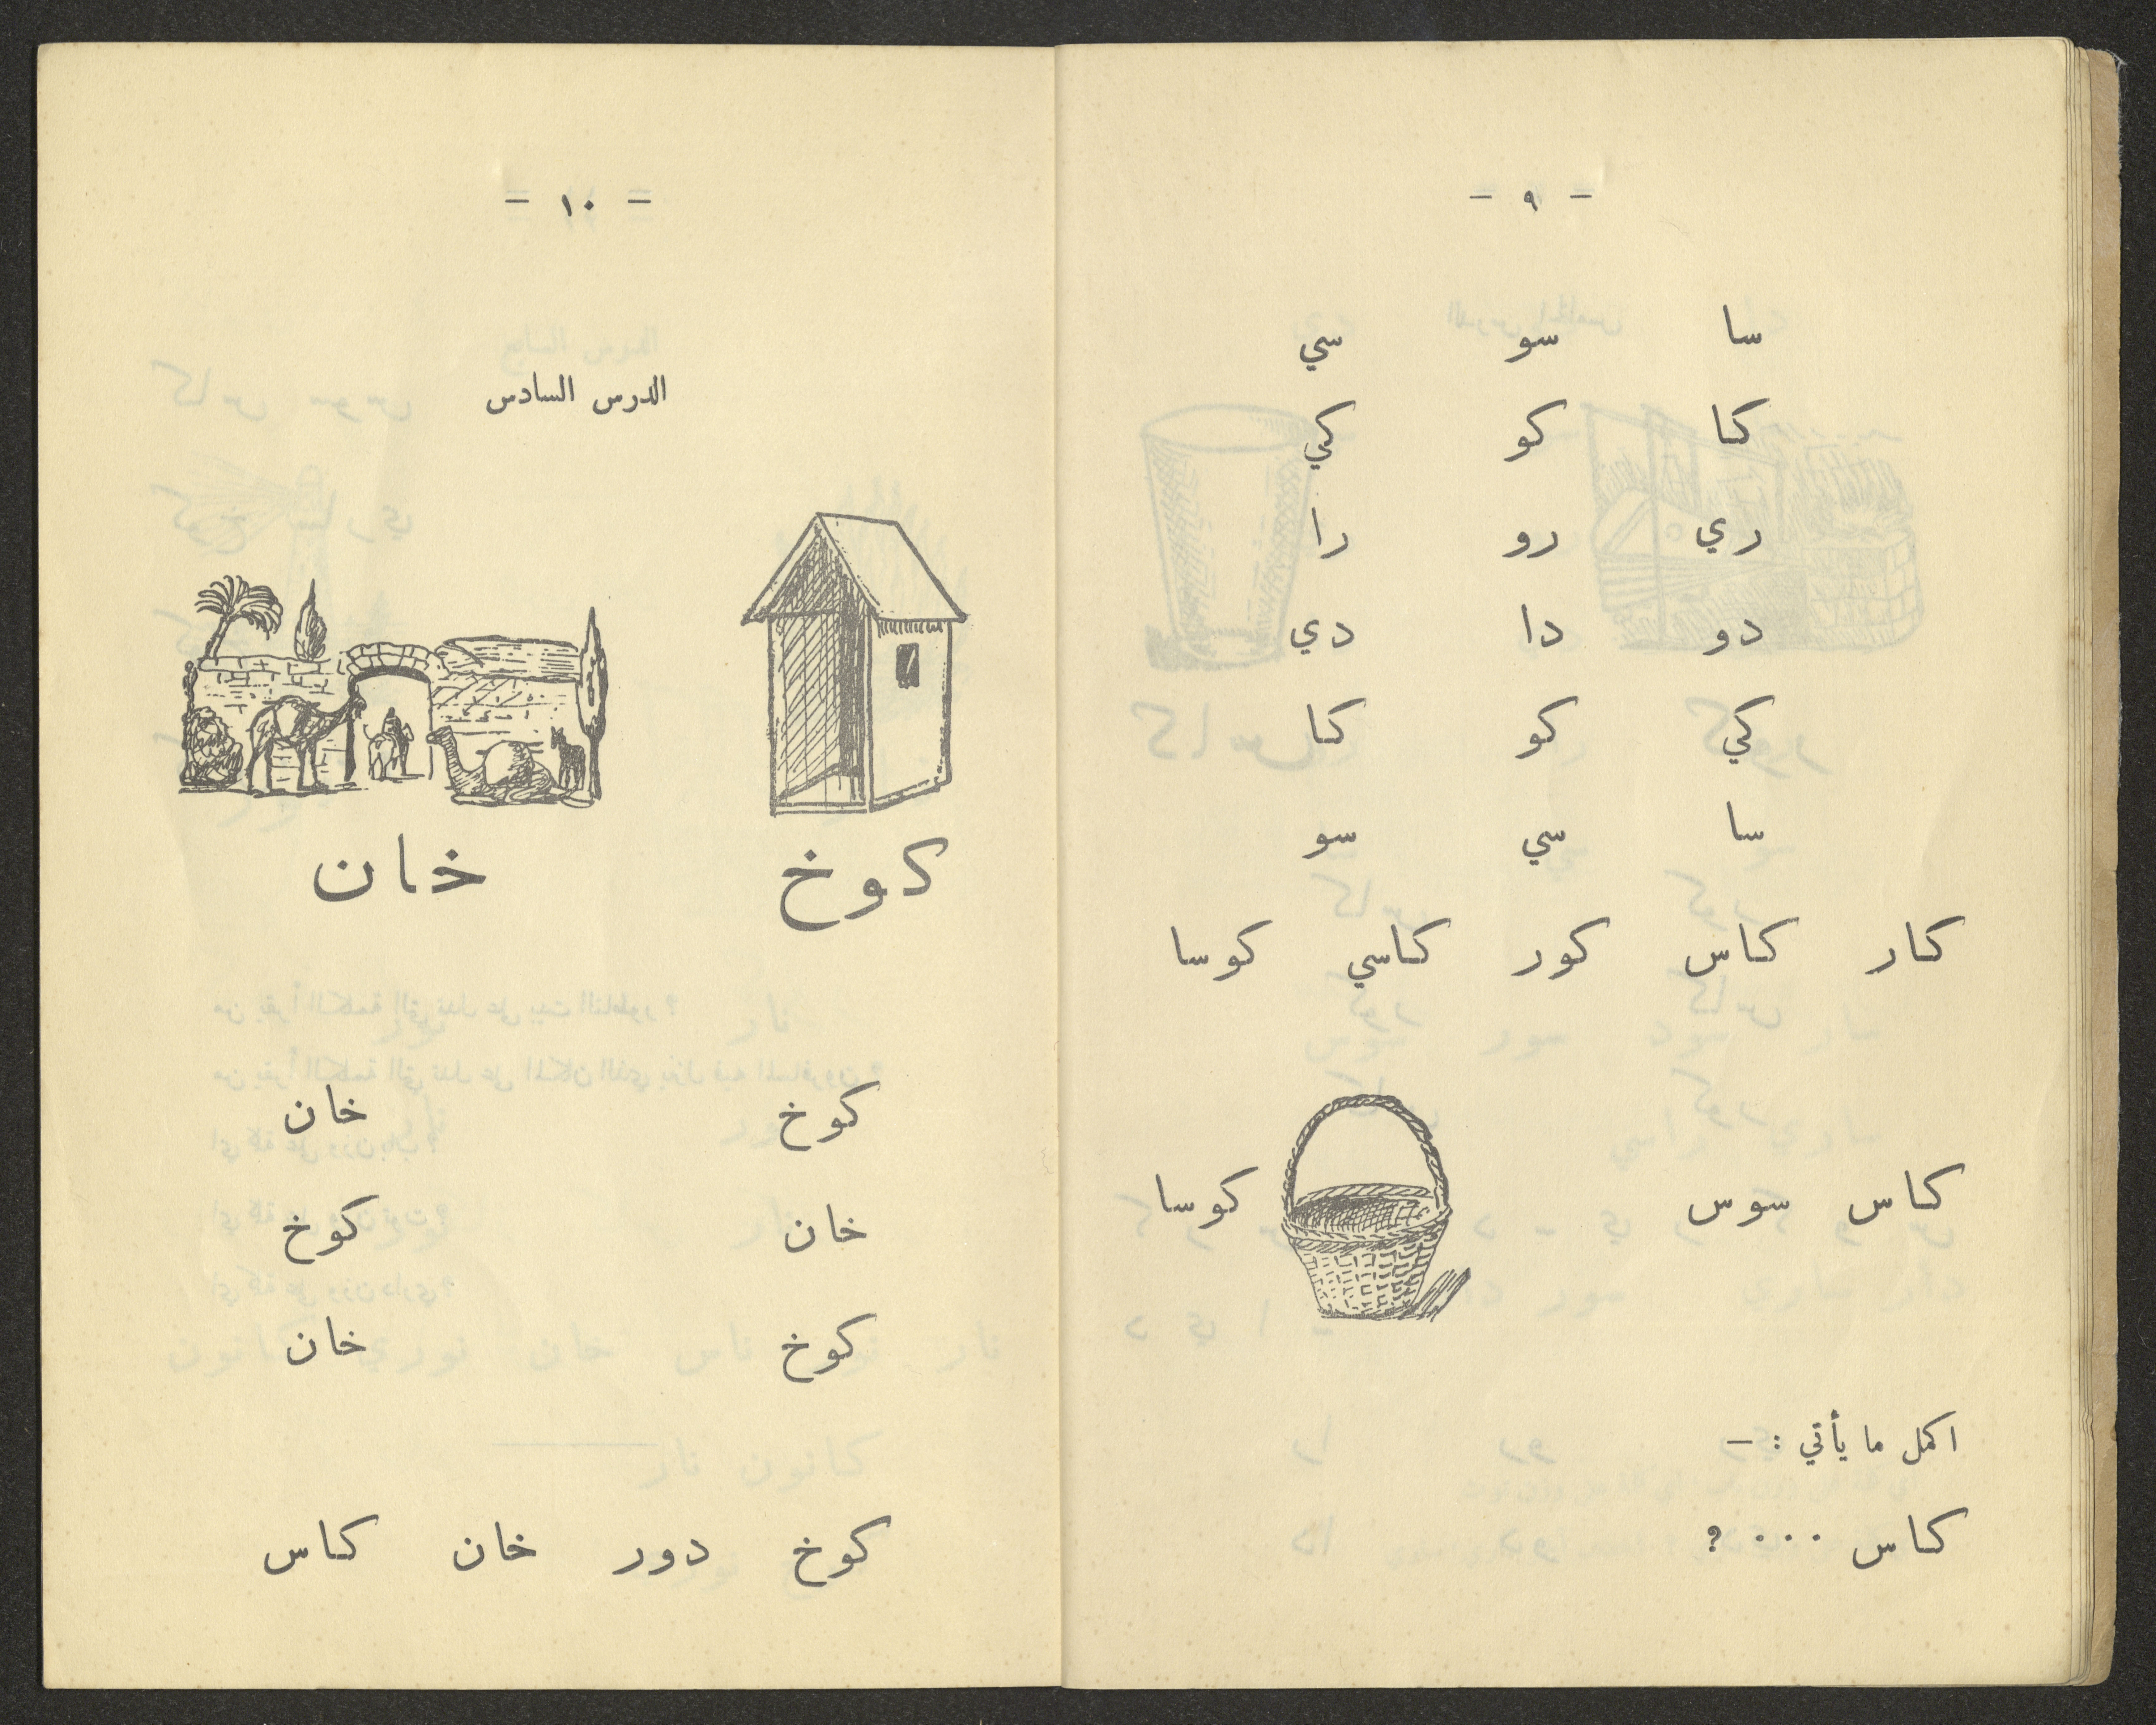 - ٩ -
سا سو سي
كا كو كي
ري رو را
دو دا دي
كي كو كا
سا سي سو
كار كاس كور كاسي كوسا
كاس سوس كوسا
اكمل ما يأتي : -
كاس . . . ؟
= ١٠ =
الدرس السادس
كوخ خان
كوخ خان
خان كوخ
كوخ خان
كوخ دور خان كاس